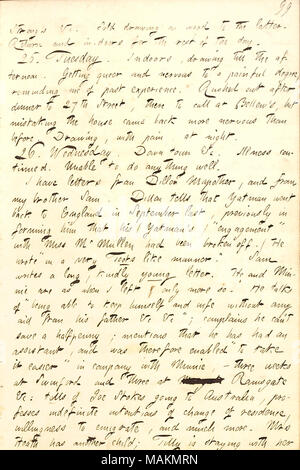 99
Strong's &c. Left drawing on wood to the latter.
Return and in-doors for the rest of the day.
25. Tuesday. Indoors, drawing till the af-
ternoon. Getting queer and nervous to a painful degree
reminding me of past experience. Rushed out after
dinner to 27th Street, there to call at Bellew's, but
mistaking the house came back more nervous than
before. Drawing, with pain at night.
26. Wednesday. Down town &c. Illness con-
tinued. Unable to do anything well.
I have letters from Dillon Mapother, and from
my brother Sam. Dillon tells that Yatman went
back to England in September last, previously in-
forming him that his (Yatman's) "engagement"
with "Miss Mc Mullen had been broken off." (He
wrote in a very Toots like manner.) Sam
writes a long, kindly young letter. He and Min-
nie are as when I left, only more so. He talks
of "being able to keep himself and wife without any
aid from his father &c &c"; complains he can't
save a halfpenny; mentions that he has had an
assistant, and was therefore enabled to take
it easier in company with Minnie — three weeks
at Swinford and three at Ramsgate
&c: tells of Joe Stokes going to Australia, pro-
fesses indefinite intentions of change of residence,
willingness to emigrate, and much more. Mrs
Heath has another child; Tilly is staying with her
alamy
Image ID: MAKMRN
www.alamy.com